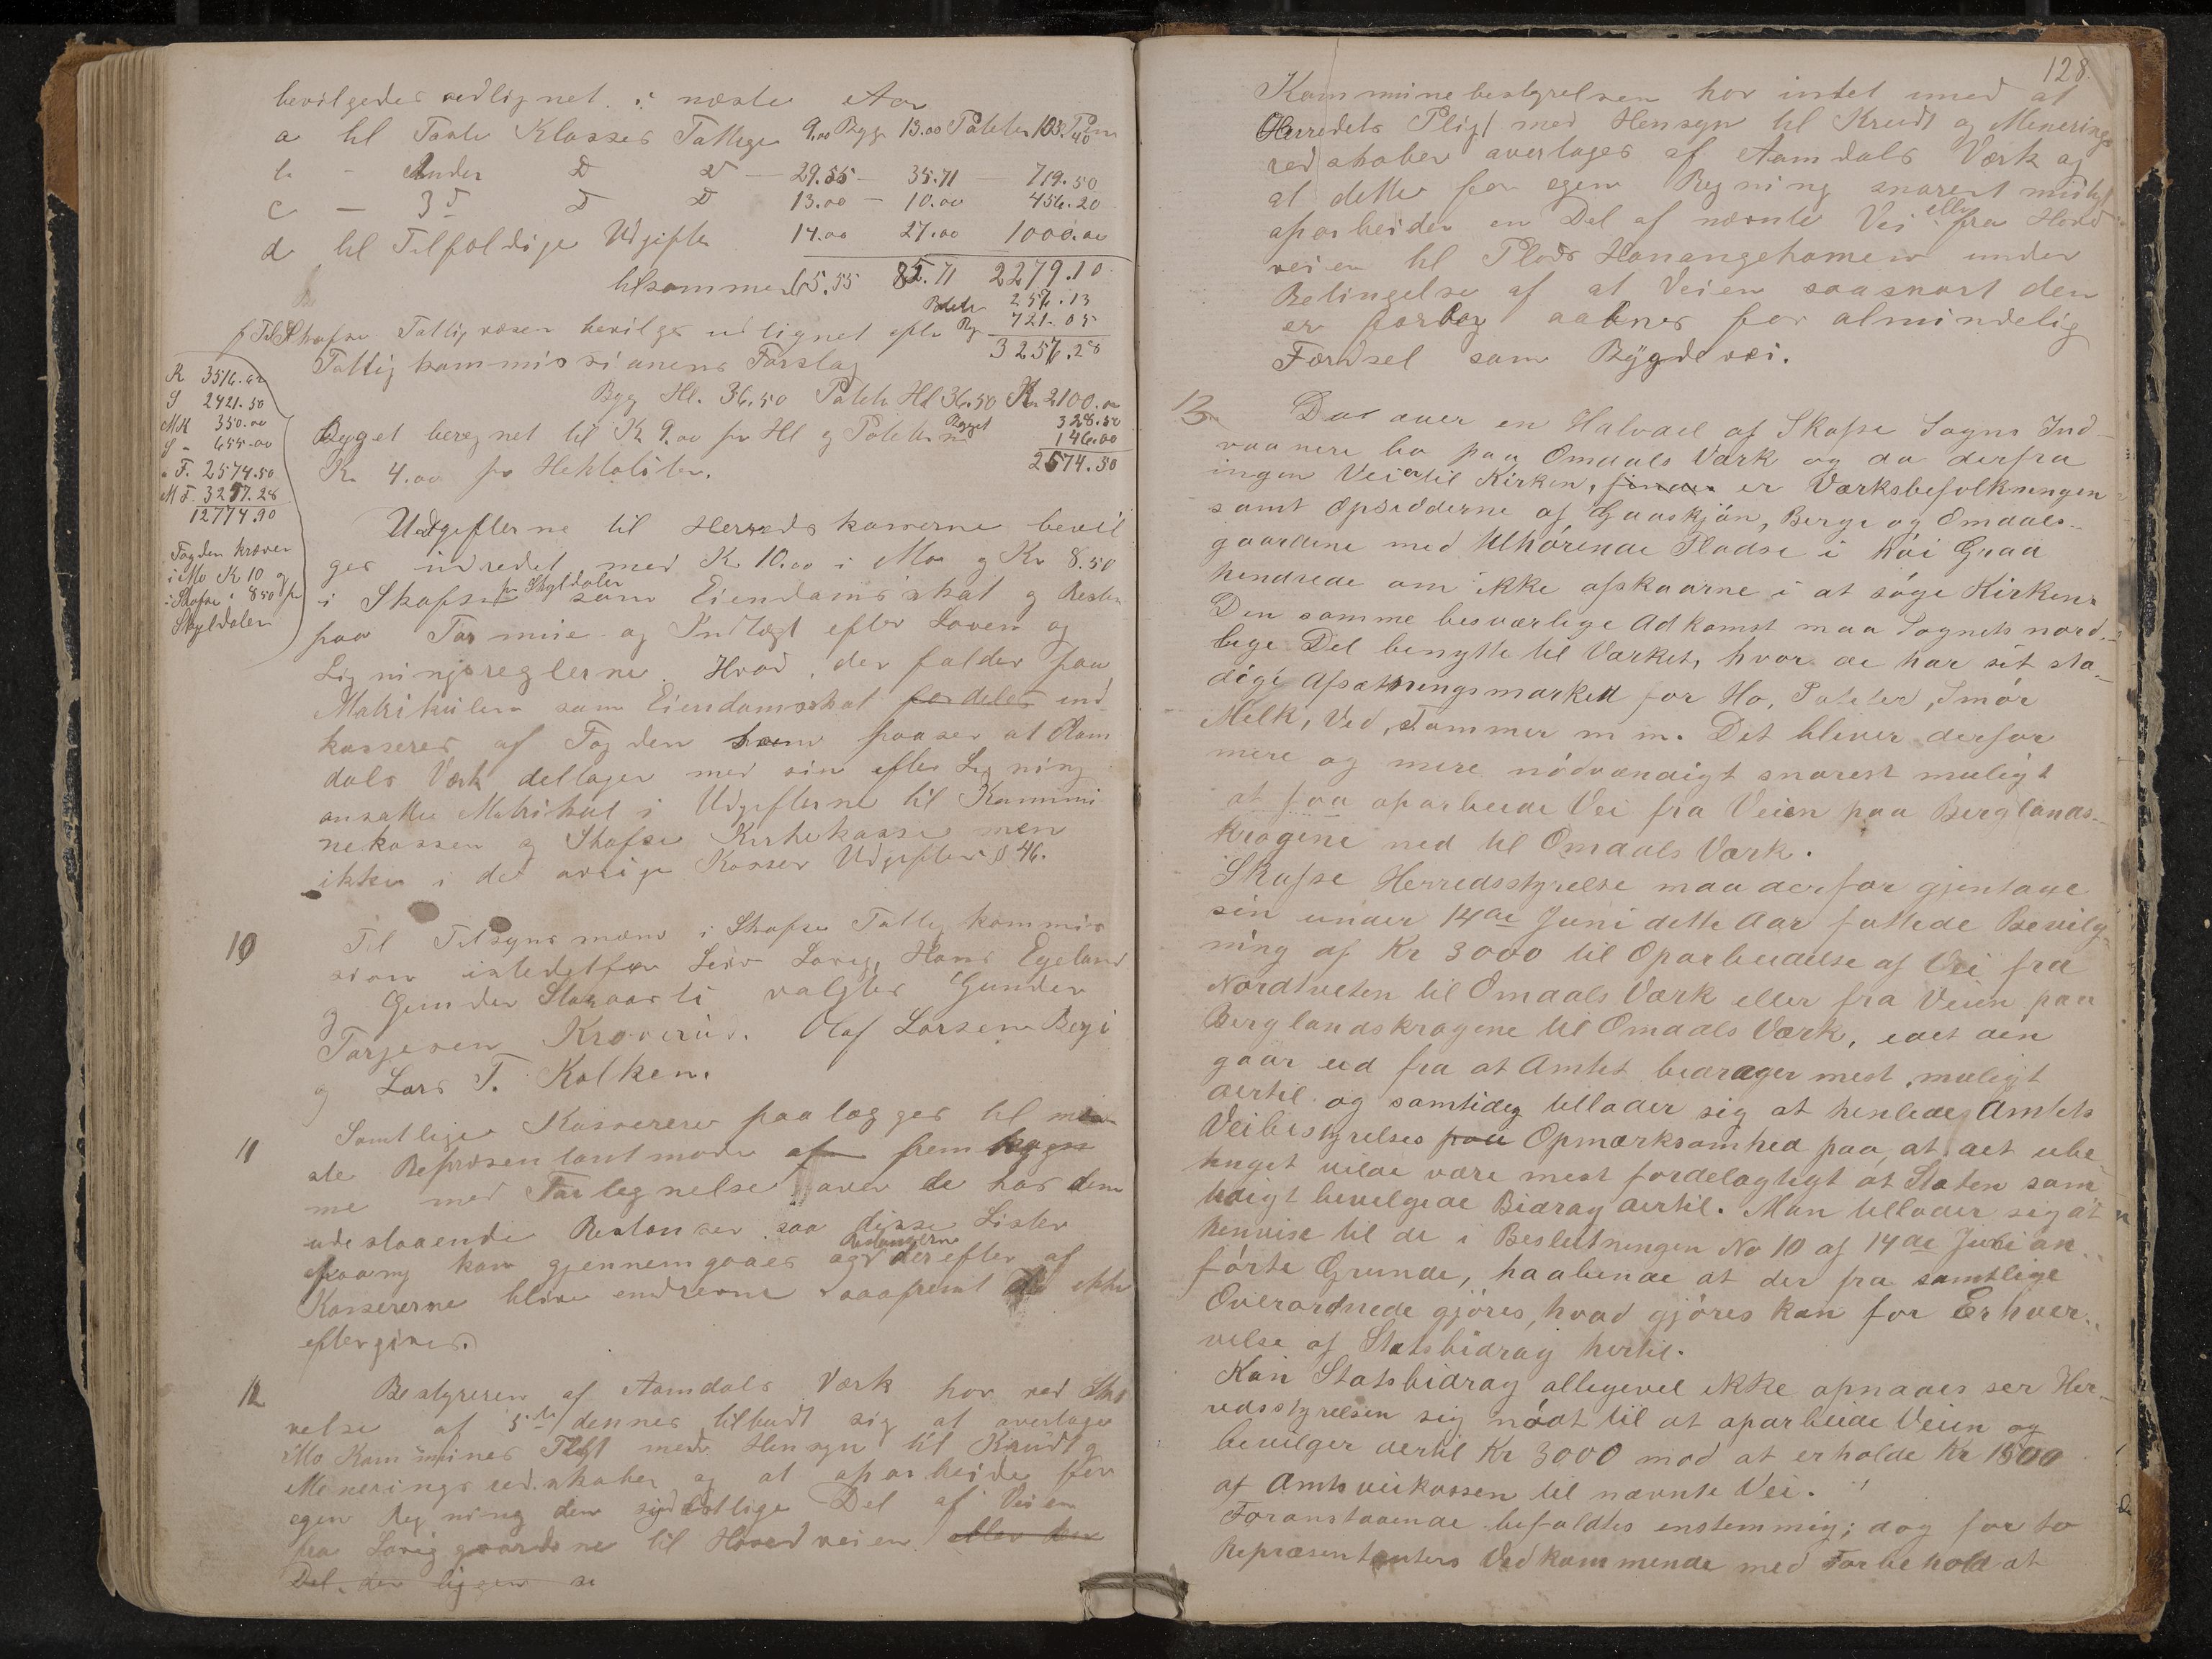 bevilgedes udlignet i næste Aar
a til Faste Klasses Fattige 9.00 Byg 13.00 Poteter 103.40
b - Anden D D — 29.55 — 35.71 — 719.50
c — 3 D D D 13.00 — 10.00 456.20
d til Tilfældige Udgifter 14.00 27.00 1000.00
tilsammen 65.55 85.71 2279.10
Poteter 257.13
f Til Skafse Fattigvæsen bevilges udlignet efter Byg 721.05
Fattigkommissionens Forslag 3257.28
Byg Hl. 36.50 Poteter Hl 36.50 Kr 2100.00
Bygget 328.50
Bygget beregnet til K 9.00 pr Hl og Poteterne 146.00
K. 4.00 pr Hektoliter. 2574.50
K 3516.62
S 2421.50
MK 350.00
S - 655.00
" F. 2574.50
M F. 3257.28
12774.90
Fogden kræver
i Mo K 10 og
i Skafse 8 50 pr
Skyldaler
Udgifterne til Herredskasserne bevil
ges indredet med K. 10.00 i Mo og Kr 8.50
i Skafse pr Skyldaler som Eiendomsskat og Resten
paa Formue og Indtægt efter Loven og
Ligningsreglerne. Hvad der falder paa
Matrikulen som Eiendomsskat fordeles ind
kasseres af Fogden som paaser at Aam
dals Værk deltager med sin efter Ligning
ansatte Matrikul i Udgifterne til Kommu
nekassen og Skafse Kirkekasse men
ikke i de øvrige Kasser Udgifter § 46.
10 Til Tilsynsmænd i Skafse Fattigkommis
sion istedetfor Leiv Lavig, Hans Egeland
og Gunder Slaaasti valgtes Gunder
Torjesen Kroverud. Olaf Larsen Bergi
og Lars T. Kolken.
11 Samtlige Kasserere paalægges til næ
ste Repræsentantmøde at frem komme
me med Fortegnelse over de hos dem
udestaaende Restancer saa disse Lister
paany kan gjennemgaaes og Restancerne derefter af
Kassererne blive inddrevne saafremt de ikke
eftergives.
12 Bestyreren af Aamdals Værk har ved Skri
velse af 5te dennes tilbudt sig at overtage
Mo Kommunes Pligt med Hensyn til Krudt og
Meneringsredskaber og at oparbeide for
egen Regning den sydøstlige Del af Veien
fra Laviggaardene til Hovedveien eller den
Del, der ligger se
128.
Kommunebestyrelsen har intet imod at
Herredets Pligt med Hensyn til Krudt og Menerings
redskaber overtages af Aamdals Værk og
at dette for egen Regning snarest muligt
oparbeider en Del af nævnte Vei eller fra Hoved
veien til Plads Hanangehomen under
Betingelse af at Veien saasnart den
er farbar aabnes for almindelig
Færdsel som Bygdevei.
13 Da over en Halvdel af Skafse Sogns Ind-
vaanere bo paa Omdals Værk og da derfra
ingen Vei er til Kirken, finder er Værksbefolkningen
samt Opsidderne af Gaaskjøn, Berge og Omdals-
gaardene med tilhørende Pladse i høi Grad
hindrede om ikke afskaarne i at søge Kirken.
Den samme besværlige Adkomst maa Sognets nord-
lige Del benytte til Værket, hvor de har sit sta-
dige Afsætningsmarked for Hø, Poteter, Smør
Melk, Ved, Tømmer m m. Det bliver derfor
mere og mere nødvendigt snarest muligt
at faa oparbeidet Vei fra Veien paa Berglands-
krogene ned til Omdals Værk.
Skafse Herredsstyrelse maa derfor gjentage
sin under 14de Juni dette Aar fattede Bevilg-
ning af Kr 3000 til Oparbeidelse af Vei fra
Nordtveten til Omdals Værk eller fra Veien paa
Berglandskrogene til Omdals Værk, idet den
gaar ud fra at Amtet bidrager mest muligt
dertil og samtidig tillader sig at henlede Amtets
Veibestyrelses paa Opmærksomhed paa, at det ube-
tinget vilde være mest fordelagtigt at Staten sam
tidigt bevilgede Bidrag dertil. Man tillader sig at
henvise til de i Beslutningen No 10 af 14de Juni an-
førte Grunde, haabende at der fra samtlige
Overordnede gjøres, hvad gjøres kan for Erhver-
velse af Statsbidrag hertil.
Kan Statsbidrag alligevel ikke opnaaes ser Her-
redsstyrelsen sig nødt til at oparbeide Veien og
bevilger dertil Kr 3000 mod at erholde Kr 1500
af Amtsveikassen til nævnte Vei.
Foranstaaende befaldtes enstemmig; dog for to
Repræsentanters Vedkommende med Forbehold at